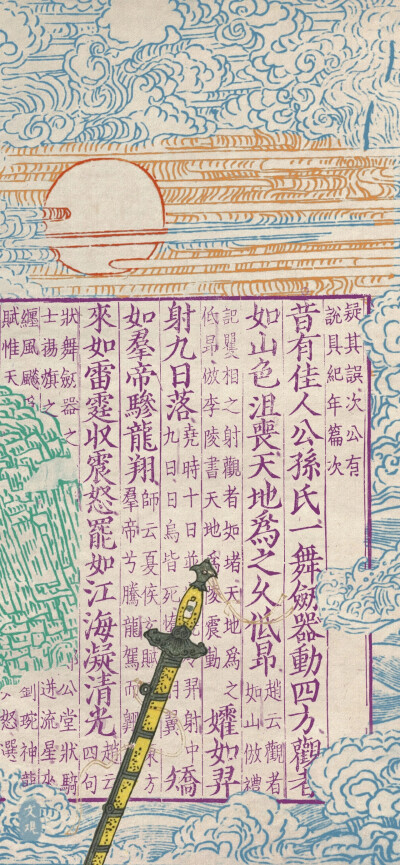 疑其誤次公有
說具紀年篇次
昔有佳人公孫氏一舞劒器動四方觀者
如山色沮喪天地爲之久低昂
趙云觀者
如山倣禮
記矍相之射觀者如堵天地爲之
低昂倣李陵書天地爲陵震動
㸌如羿
射九日落
堯時十日並 羿射中
九日日烏皆死 羽翼
矯
如羣帝驂龍翔
師云夏侯玄賦 東方
羣帝兮騰龍駕而
來如雷霆收震怒罷如江海凝清光
趙云
四句
狀舞劒器之 公堂狀騎
士揚旗之 迸流星
纒風飈 神龍
賦惟天 怒選